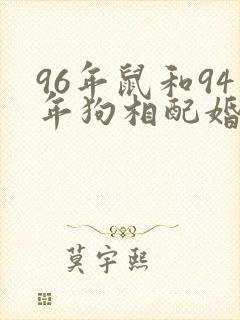 96年鼠和94
年狗相配婚
莫宇熙